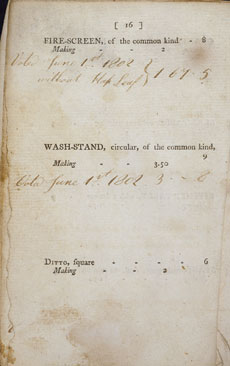 [ 16 ]
FIRE-SCREEN, of the common kind - 8
Making - - 2
Voted June 1st 1802
without Flap Leaf } 1 67 5
WASH-STAND, circular, of the common kind,
9
Making - - 3.50
Voted June 1st 1802 3 - 6
DITTO, square - - - - - 6
Making - - 2